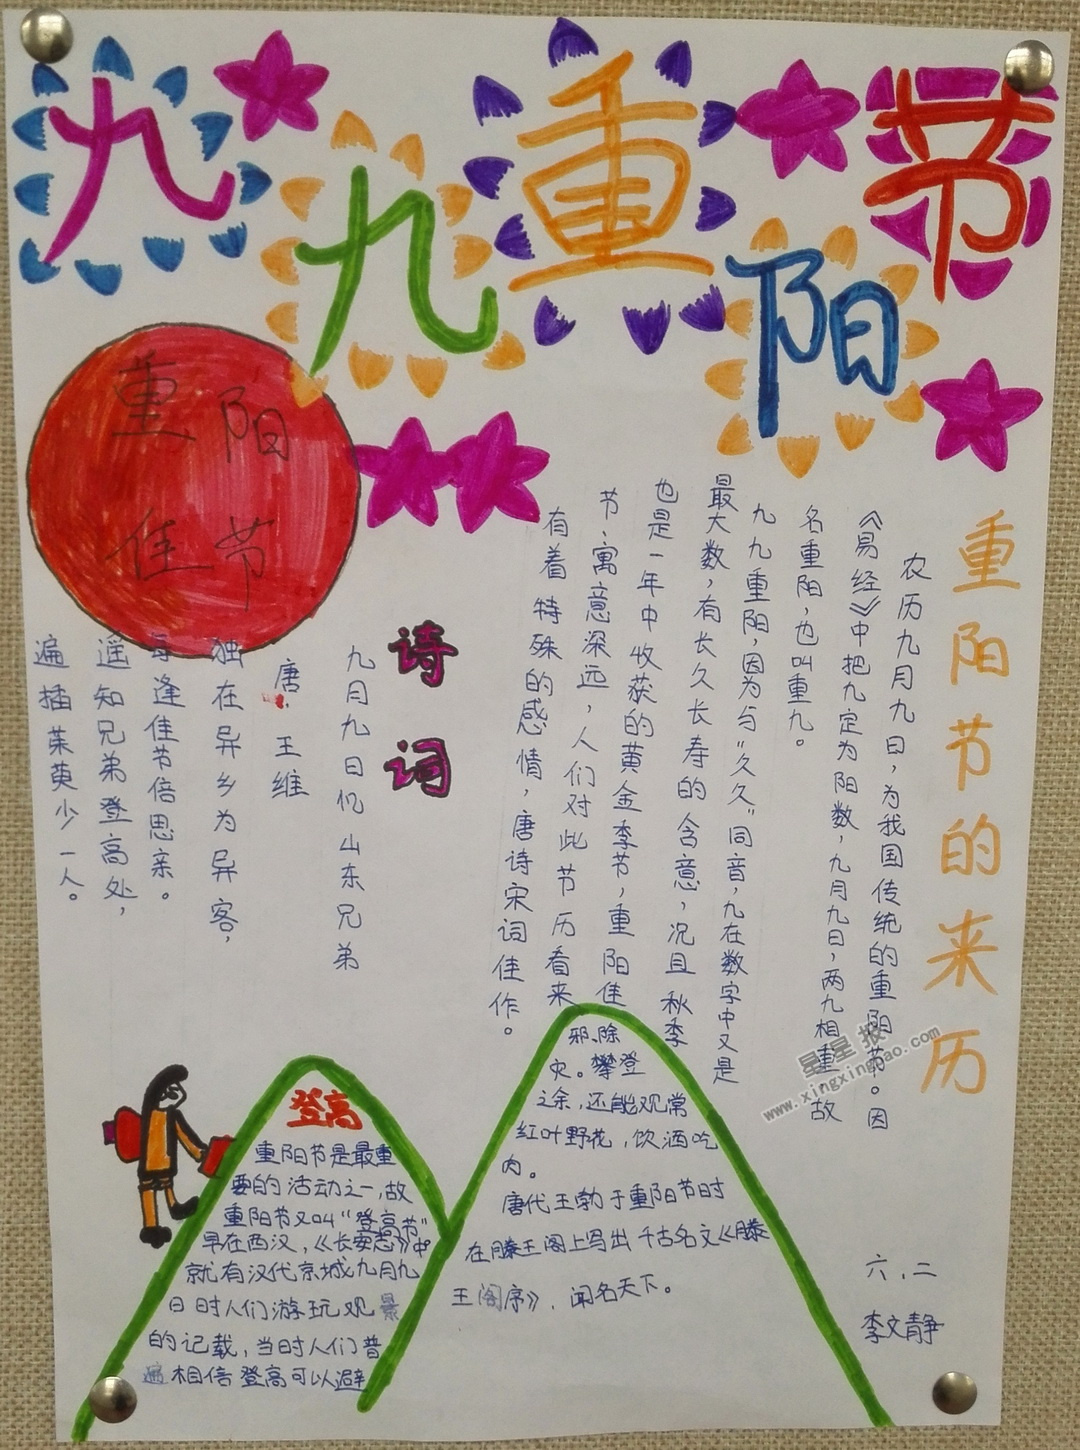 九九重阳节
重阳
佳节
重阳节的来历
农历九月九日，为我国传统的重阳节。因
《易经》中把九定为阳数，九月九日，两九相重，故
名重阳，也叫重九。
九九重阳，因为与“久久”同音，九在数字中又是
最大数，有长久长寿的含意，况且秋季
也是一年中收获的黄金季节，重阳佳
节，寓意深远，人们对此节历看来
有着特殊的感情，唐诗宋词佳作。
诗词
九月九日忆山东兄弟
唐 王维
独在异乡为异客，
每逢佳节倍思亲。
遥知兄弟登高处，
遍插茱萸少一人。
登高
重阳节是最重
要的活动之一，故
重阳节又叫“登高节”
早在西汉，《长安志》中
就有汉代京城九月九
日时人们游玩观景
的记载，当时人们普
遍相信登高可以避
邪、除
灾。攀登
之余，还能观赏
红叶野花，饮酒吃
肉。
唐代王勃于重阳节时
在滕王阁上写出千古名文《滕
王阁序》，闻名天下。
六，二
李文静
星星报
www.xingxingbao.com